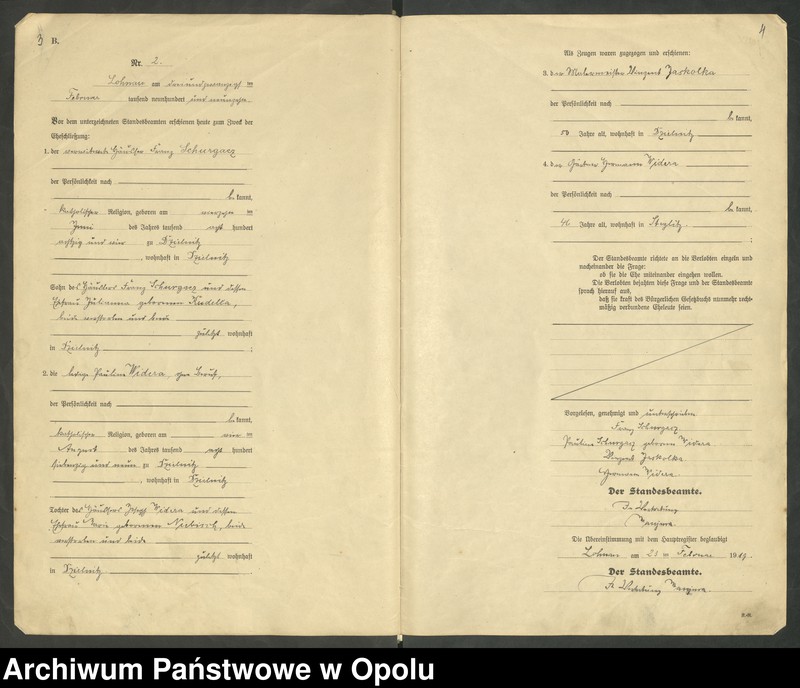 3
B.
Nr. 2.
Lohnau am dreiundzwanzigsten
Februar tausend neunhundert und neunzehn
Vor dem unterzeichneten Standesbeamten erschienen heute zum Zweck der
Eheschließung:
1. der verwitwete Häusler Franz Schurgacz
der Persönlichkeit nach
be kannt,
katholischer Religion, geboren am
Juni des Jahres tausend acht hundert
achtzig und vier zu Dzielnitz
, wohnhaft in Dzielnitz
Sohn des Häuslers Franz Schurgacz und dessen
Ehefrau Julianna geborenen Kudella,
beide verstorben und beide
zuletzt wohnhaft
in Dzielnitz ;
2. die ledige Pauline Widera, ohne Beruf,
der Persönlichkeit nach
be kannt,
katholischer Religion, geboren am
August des Jahres tausend acht hundert
siebenzig und neun zu Dzielnitz
, wohnhaft in Dzielnitz
Tochter des Häuslers Josef Widera und dessen
Ehefrau Marie geborenen beide
verstorben und beide
zuletzt wohnhaft
in Dzielnitz
4
Als Zeugen waren zugezogen und erschienen:
3. der Vinzent Jaskolka
der Persönlichkeit nach
be kannt,
50 Jahre alt, wohnhaft in Dzielnitz
4. der Hermann Widera
der Persönlichkeit nach
be kannt,
Jahre alt, wohnhaft in
;
Der Standesbeamte richtete an die Verlobten einzeln und
nacheinander die Frage:
ob sie die Ehe miteinander eingehen wollen.
Die Verlobten bejahten diese Frage und der Standesbeamte
sprach hierauf aus,
daß sie kraft des Bürgerlichen Gesetzbuchs nunmehr recht-
mäßig verbundene Eheleute seien.
Vorgelesen, genehmigt und unterschrieben
Franz Schurgacz
Pauline Schurgacz geborene Widera
Vinzent Jaskolka
Hermann Widera
Der Standesbeamte.
In Vertretung
Die Übereinstimmung mit dem Hauptregister beglaubigt
Lohnau am 23 ten Februar 1919.
Der Standesbeamte.
In Vertretung
Archiwum Państwowe w Opolu